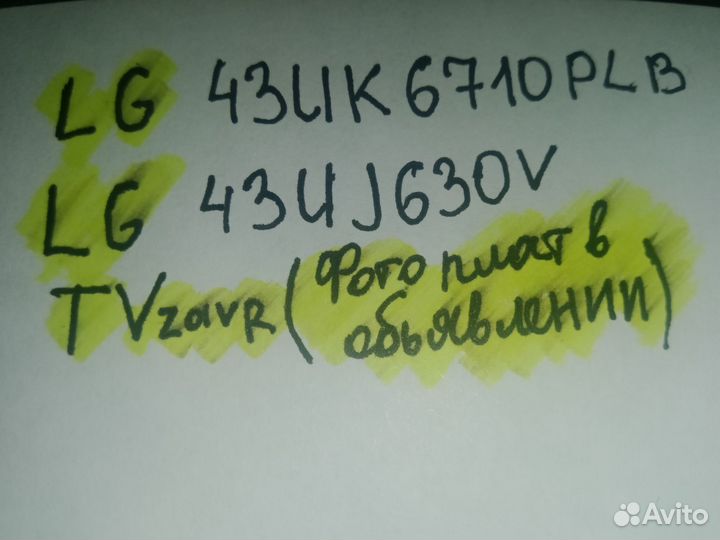 LG 43UK6710PLB
LG 43UJ630V
TVzavR (Фото плат в
обьявлении)
Avito